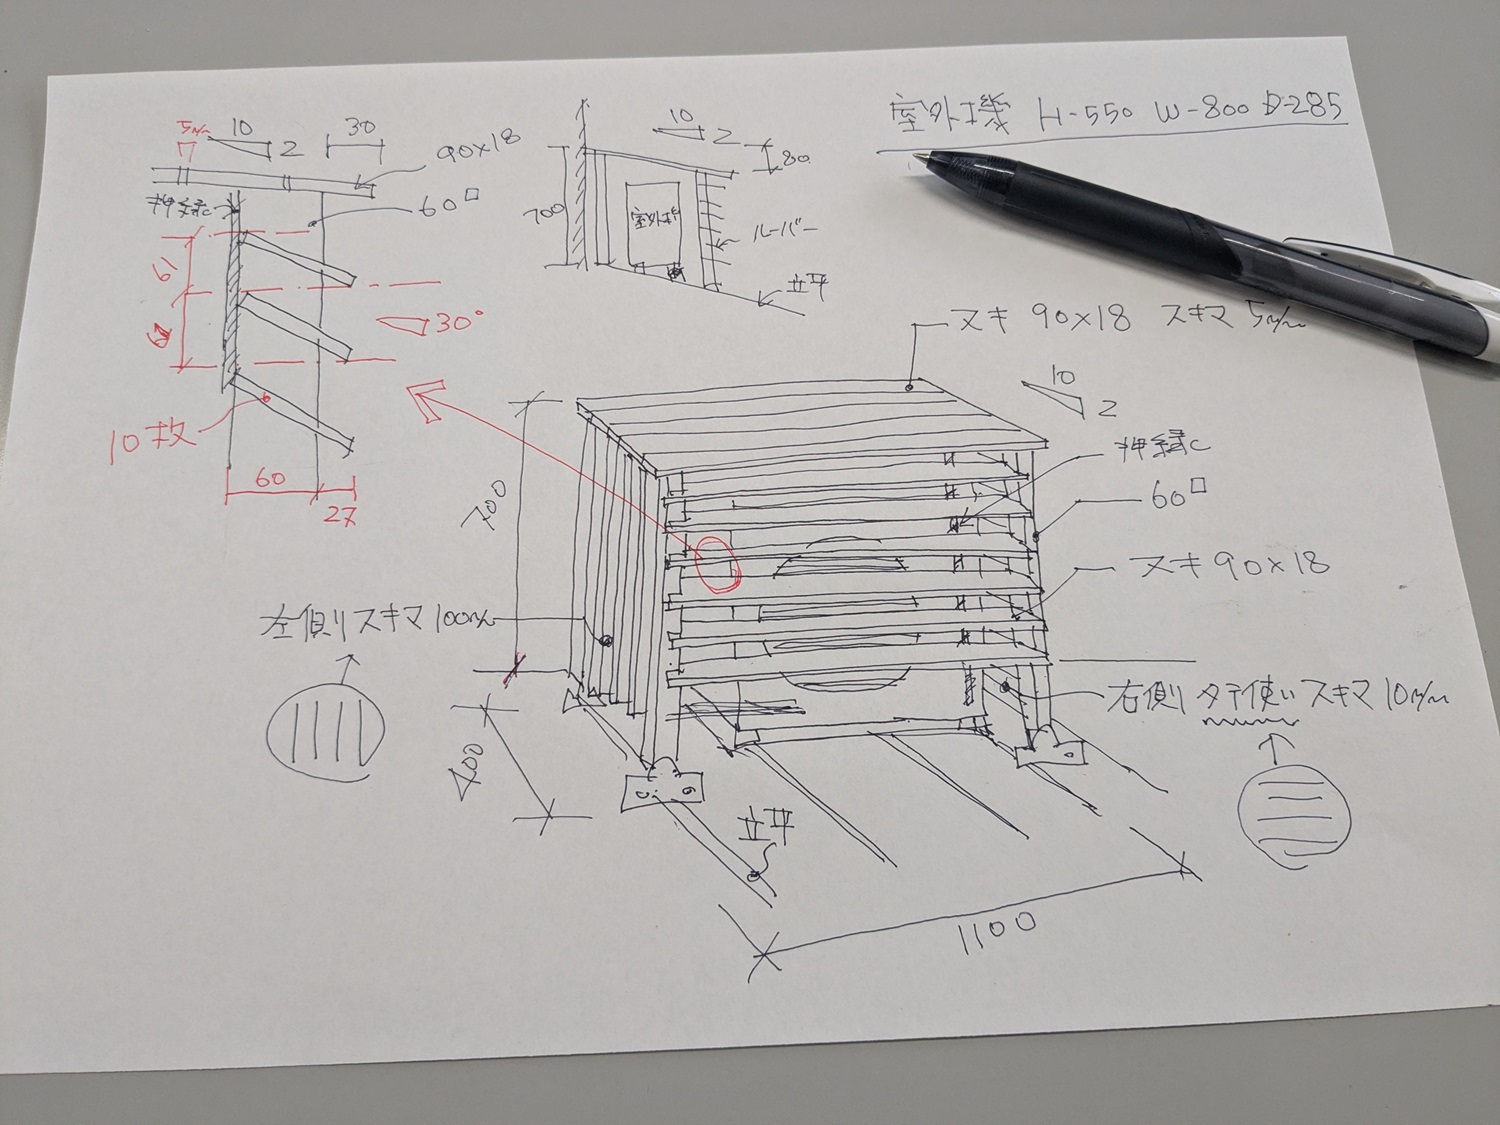 室外機 H-550 W-800 D-285
5m/m
10
2
30
90×18
押縁
60□
61
61
30°
10枚
60
27
10
2
80
700
室外機
ルーバー
立平
ヌキ 90×18 スキマ 5m/m
10
2
押縁
60□
ヌキ 90×18
700
左側リスキマ 100m/m
右側リ タテ使い スキマ 10m/m
400
立平
1100